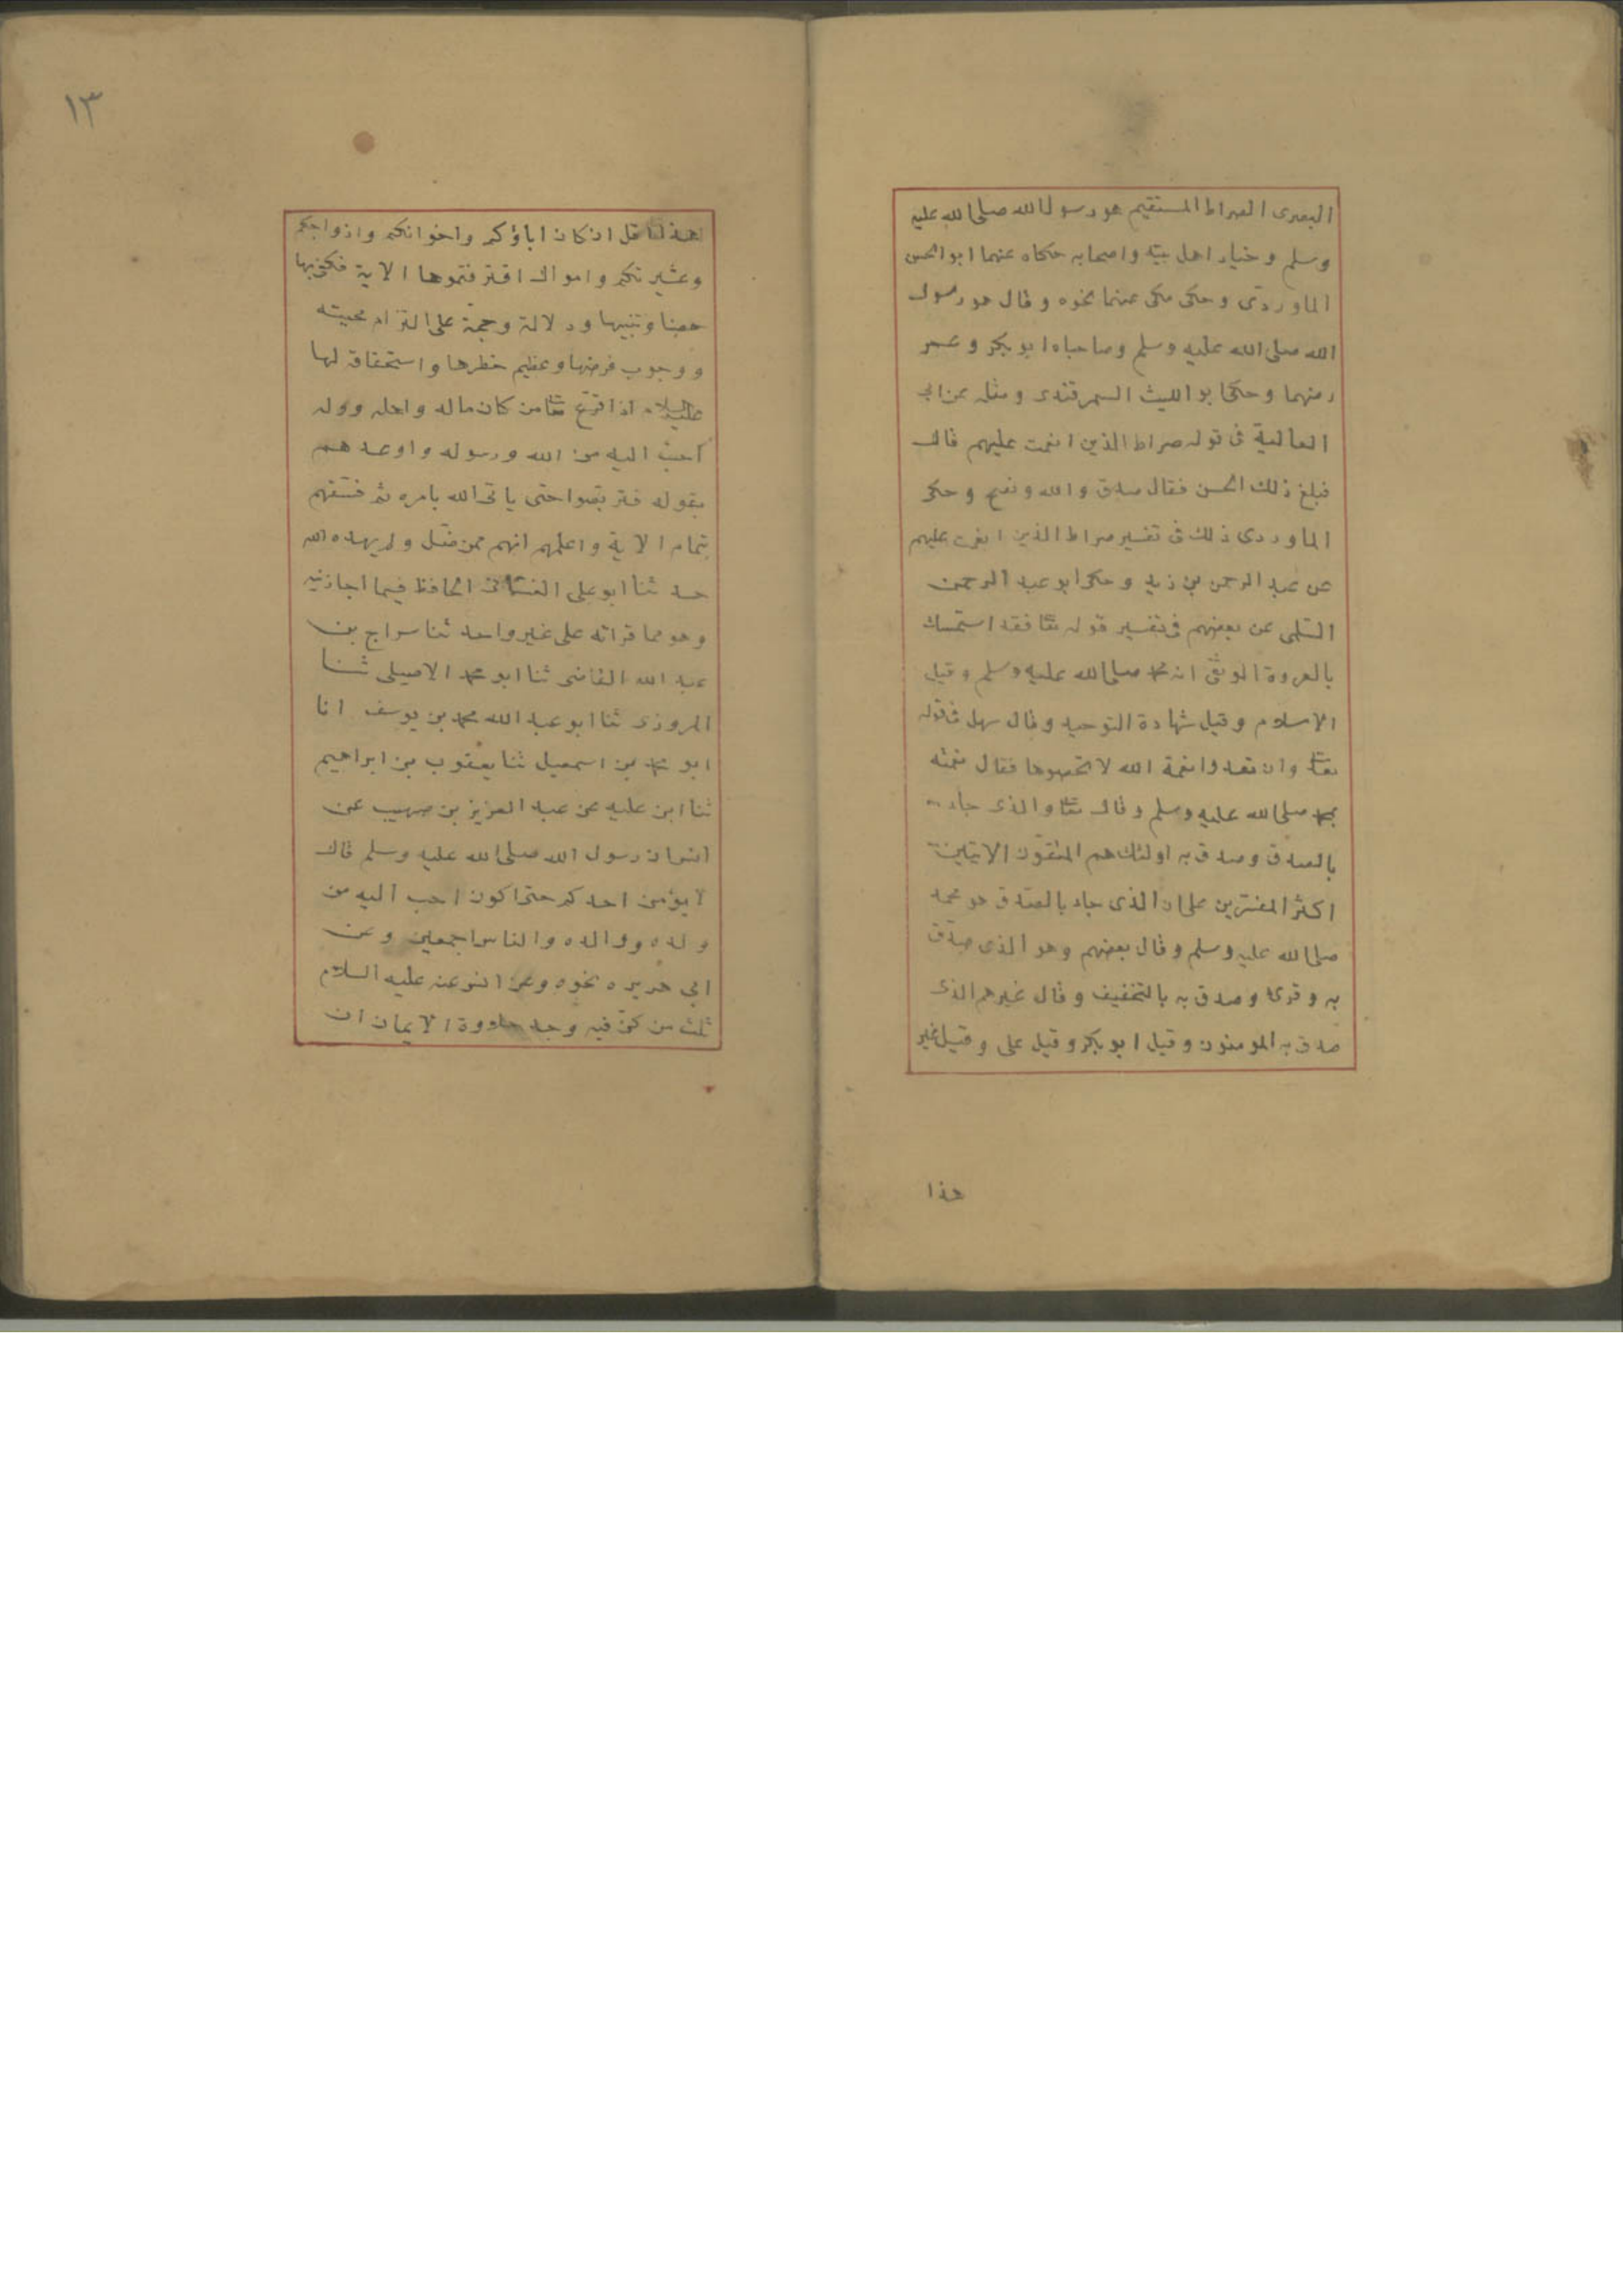 البصرى الصراط المستقيم هو رسول الله صلى الله عليه
وسلم وخيار اهل بيته واصحابه حكاه عنهما ابو الحسن
الماوردى وحكى مكى عنهما نحوه وقال هو رسول
الله صلى الله عليه وسلم وصاحباه ابو بكر وعمر
رضهما وحكى ابو الليث السمرقندى ومثله عن ابى
العالية فى قوله صراط الذين انعمت عليهم قال
فبلغ ذلك الحسن فقال صدق والله ونصح وحكى
الماوردى ذلك فى تفسير صراط الذين انعمت عليهم
عن عبد الرحمن بن زيد وحكى ابو عبد الرحمن
السّلمى عن بعضهم فى تفسير قوله تعا فقد استمسك
بالعروة الوثقى انه محمد صلى الله عليه وسلم وقيل
الاسلام وقيل شهادة التوحيد وقال سهل فى قوله
تعا وان تعدوا نعمة الله لا تحصوها فقال نعمته
بمحمد صلى الله عليه وسلم وقال تعا والذى جاء
بالصدق وصدق به اولئك هم المتقون الايتين
اكثر المفسرين على ان الذى جاء بالصدق هو محمد
صلى الله عليه وسلم وقال بعضهم وهو الذى صدّق
به وقرئ وصدق به بالتخفيف وقال غيرهم الذى
صدق به المومنون وقيل ابو بكر وقيل على وقيل غير
هذا
قل ان كان اباؤكم واخوانكم وازواجكم
وعشيرتكم واموال اقترفتموها الاية فكفى بها
حضا وتنبيها ودلالة وحجة على التزام محبته
ووجوب فرضها وعظيم خطرها واستحقاقه لها
عليه السلام اذ اقرّع تعا من كان ماله واهله وولده
احبّ اليه من الله ورسوله واوعدهم
بقوله فتربصوا حتى ياتى الله بامره ثم فسّقهم
بتمام الاية واعلمهم انهم ممن ضل ولم يهده الله
حدثنا ابو على الغسّانى الحافظ فيما اجازنيه
وهو مما قراته على غير واحد ثنا سراج بن
عبد الله القاضى ثنا ابو محمد الاصيلى ثنا
المروزى ثنا ابو عبد الله محمد بن يوسف انا
ابو محمد بن اسمعيل ثنا يعقوب بن ابراهيم
ثنا ابن عليه عن عبد العزيز بن صهيب عن
انس ان رسول الله صلى الله عليه وسلم قال
لا يؤمن احدكم حتى اكون احب اليه من
ولده ووالده والناس اجمعين وعن
ابى هريره نحوه وعن انس عنه عليه السلام
ثلث من كنّ فيه وجد حلاوة الايمان ان
١٣